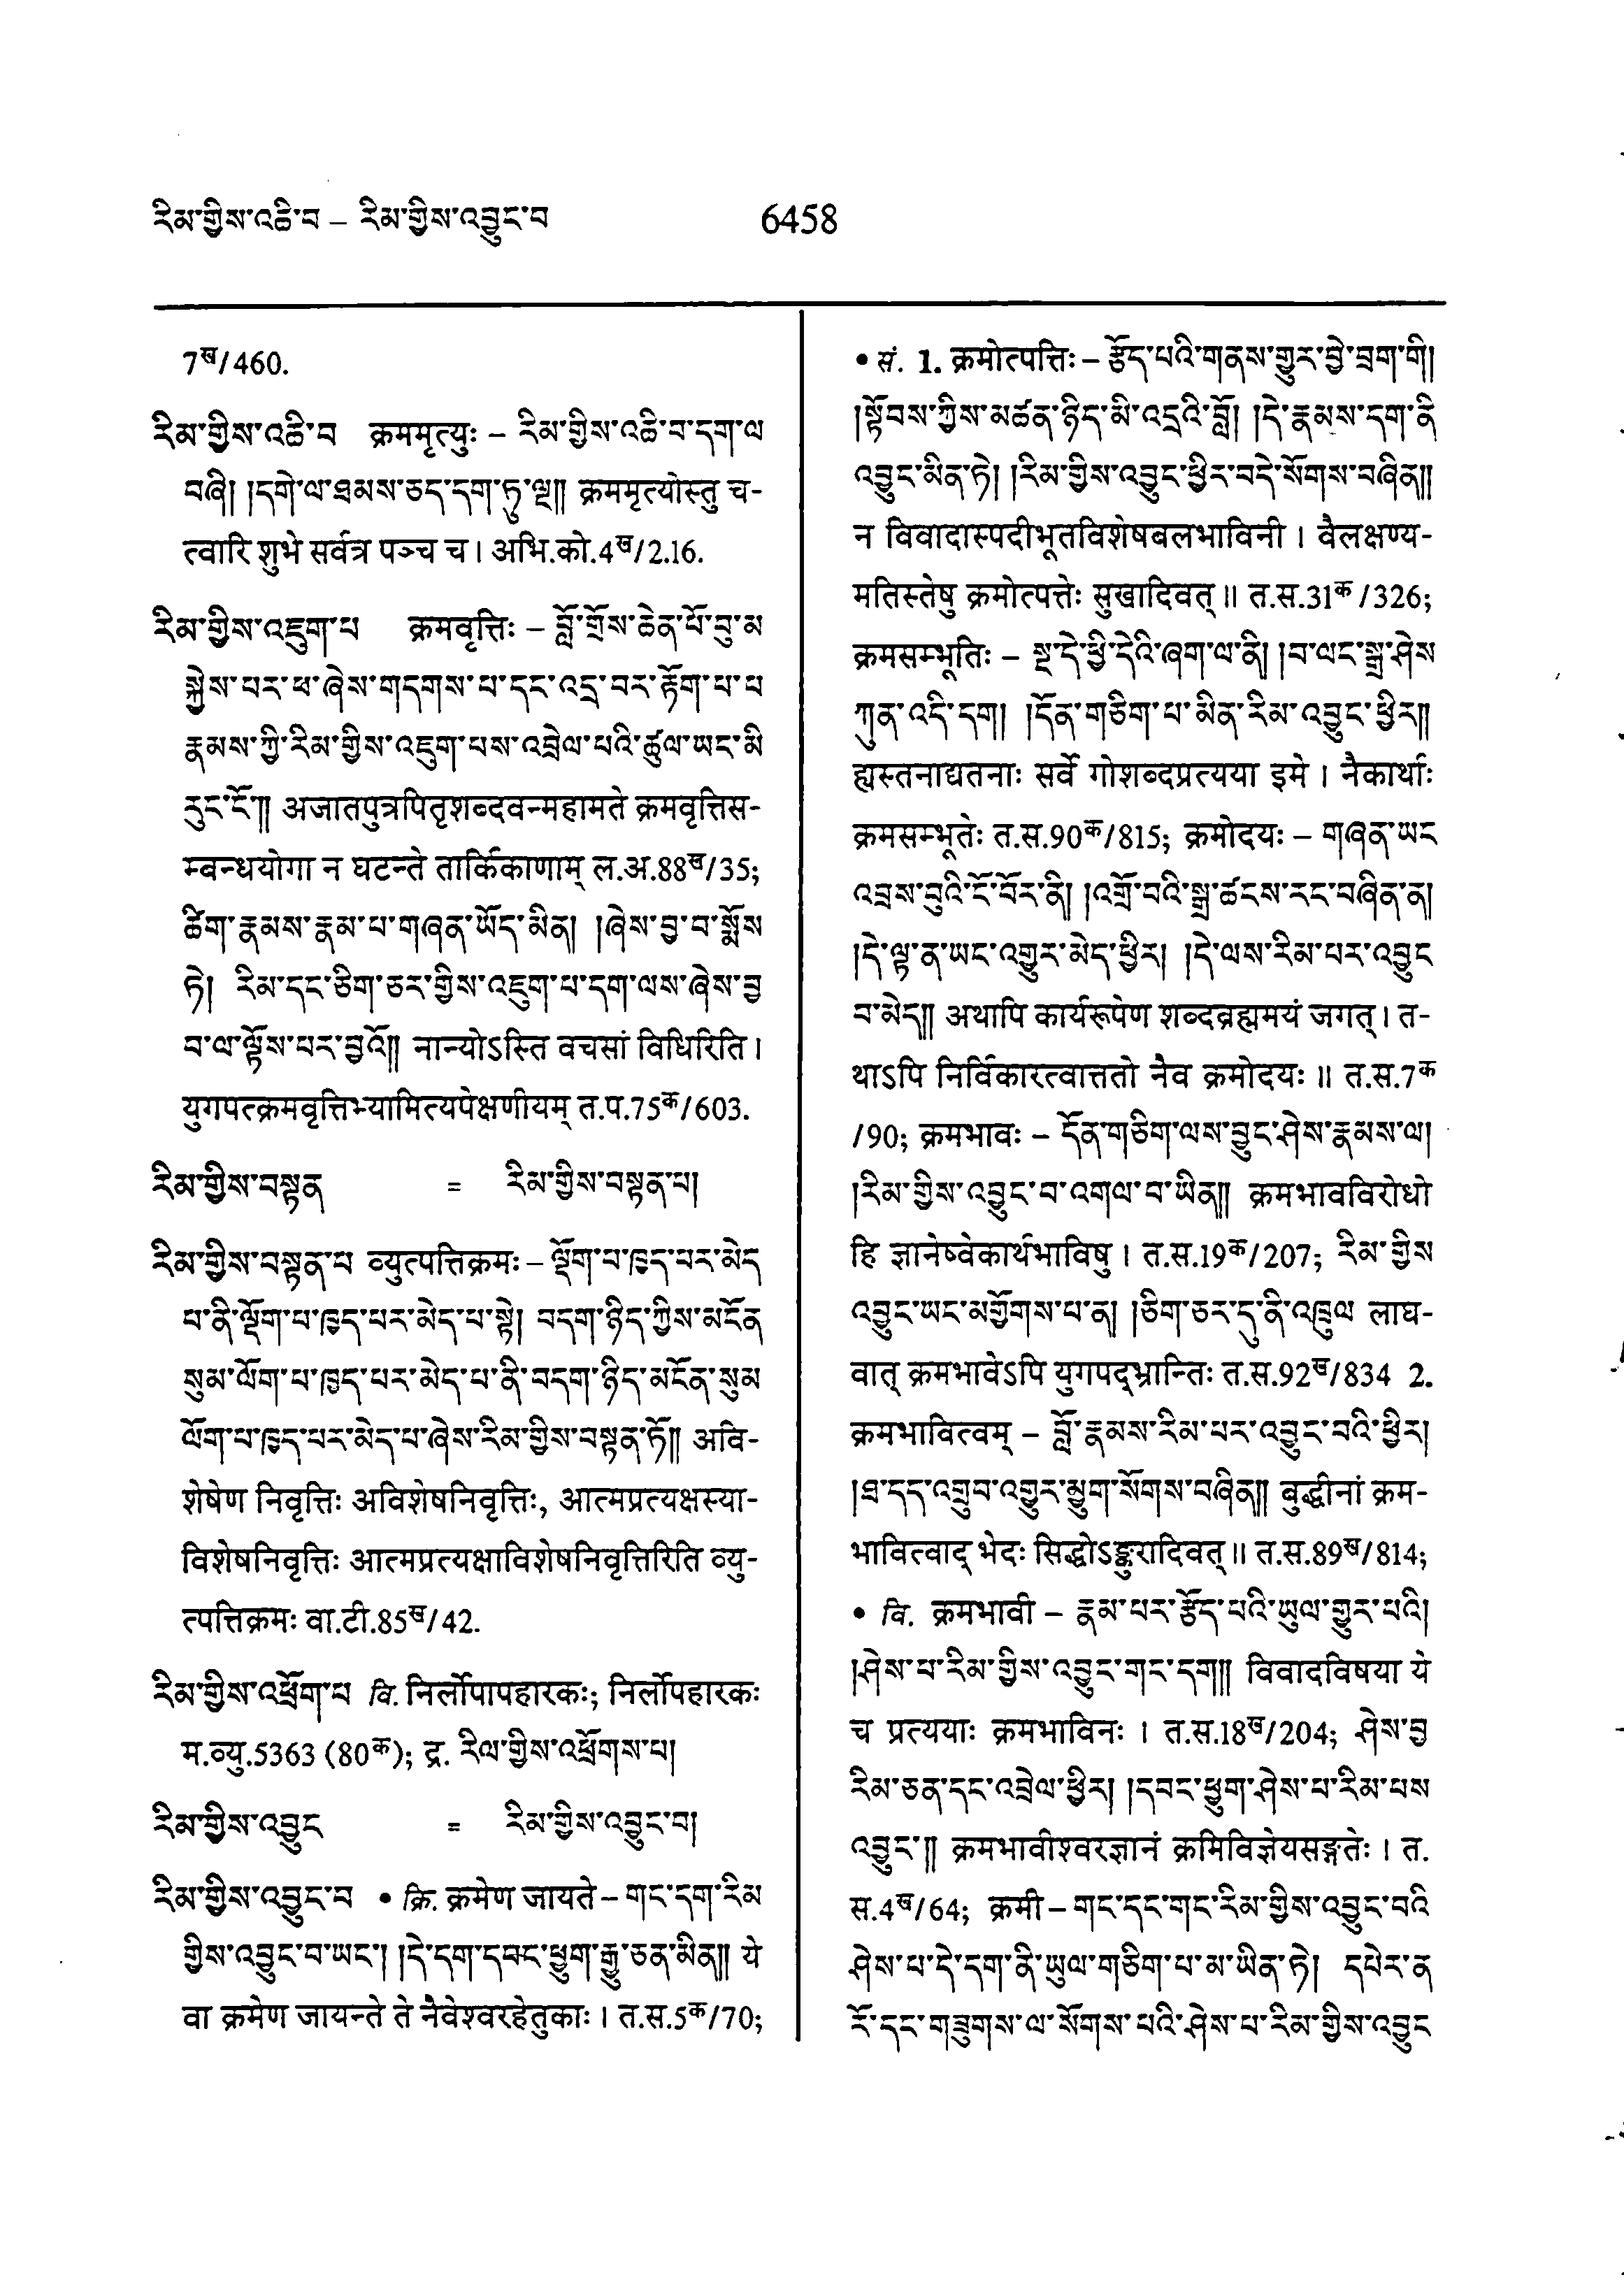 རིམ་གྱིས་འཆི་བ – རིམ་གྱིས་འབྱུང་བ 6458
7ख/460.
རིམ་གྱིས་འཆི་བ क्रममृत्युः – རིམ་གྱིས་འཆི་བ་དག་ལ
བཞི། །དགེ་ལ་ཐམས་ཅད་དག་ཏུ་ལྔ།། क्रममृत्योस्तु च-
त्वारि शुभे सर्वत्र पञ्च च । अभि.को.4ख/2.16.
རིམ་གྱིས་འཇུག་པ क्रमवृत्तिः – བློ་གྲོས་ཆེན་པོ་བུ་མ
སྐྱེས་པར་ཕ་ཞེས་གདགས་པ་དང་འདྲ་བར་རྟོག་པ་པ
རྣམས་ཀྱི་རིམ་གྱིས་འཇུག་པས་འབྲེལ་པའི་ཚུལ་ཡང་མི
རུང་ངོ་།། अजातपुत्रपितृशब्दवन्महामते क्रमवृत्तिस-
म्बन्धयोगा न घटन्ते तार्किकाणाम् ल.अ.88ख/35;
ཚིག་རྣམས་རྣམ་པ་གཞན་ཡོད་མིན། །ཞེས་བྱ་བ་སྨོས
ཏེ། རིམ་དང་ཅིག་ཅར་གྱིས་འཇུག་པ་དག་ལས་ཞེས་བྱ
བ་ལ་ལྟོས་པར་བྱའོ།། नान्योऽस्ति वचसां विधिरिति ।
युगपत्क्रमवृत्तिभ्यामित्यपेक्षणीयम् त.प.75क/603.
རིམ་གྱིས་བསྟན = རིམ་གྱིས་བསྟན་པ།
རིམ་གྱིས་བསྟན་པ व्युत्पत्तिक्रमः – ལྡོག་པ་ཁྱད་པར་མེད
པ་ནི་ལྡོག་པ་ཁྱད་པར་མེད་པ་སྟེ། བདག་ཉིད་ཀྱིས་མངོན
སུམ་ལོག་པ་ཁྱད་པར་མེད་པ་ནི་བདག་ཉིད་མངོན་སུམ
ལོག་པ་ཁྱད་པར་མེད་པ་ཞེས་རིམ་གྱིས་བསྟན་ཏོ།། अवि-
शेषेण निवृत्तिः अविशेषनिवृत्तिः, आत्मप्रत्यक्षस्या-
विशेषनिवृत्तिः आत्मप्रत्यक्षाविशेषनिवृत्तिरिति व्यु-
त्पत्तिक्रमः वा.टी.85ख/42.
རིམ་གྱིས་འཕྲོག་པ वि. निर्लोपापहारकः; निर्लोपहारकः
म.व्यु.5363 (80क); द्र. རིལ་གྱིས་འཕྲོགས་པ།
རིམ་གྱིས་འབྱུང = རིམ་གྱིས་འབྱུང་བ།
རིམ་གྱིས་འབྱུང་བ • क्रि. क्रमेण जायते – གང་དག་རིམ
གྱིས་འབྱུང་བ་ཡང་། །དེ་དག་དབང་ཕྱུག་རྒྱུ་ཅན་མིན།། ये
वा क्रमेण जायन्ते ते नैवेश्वरहेतुकाः । त.स.5क/70;
• सं. 1. क्रमोत्पत्तिः – རྩོད་པའི་གནས་གྱུར་བྱེ་བྲག་གི།
།སྟོབས་ཀྱིས་མཚན་ཉིད་མི་འདྲའི་བློ། །དེ་རྣམས་དག་ནི
འབྱུང་མིན་ཏེ། །རིམ་གྱིས་འབྱུང་ཕྱིར་བདེ་སོགས་བཞིན།།
न विवादास्पदीभूतविशेषबलभाविनी । वैलक्षण्य-
मतिस्तेषु क्रमोत्पत्तेः सुखादिवत् ॥ त.स.31क/326;
क्रमसम्भूतिः – སྔ་དེ་ཕྱི་དེའི་ཞག་ལ་ནི། །བ་ལང་སྒྲ་ཤེས
ཀུན་འདི་དག། །དོན་གཅིག་པ་མིན་རིམ་འབྱུང་ཕྱིར།།
ह्यस्तनाद्यतनाः सर्वे गोशब्दप्रत्यया इमे । नैकार्थाः
क्रमसम्भूतेः त.स.90क/815; क्रमोदयः – གཞན་ཡང
འབྲས་བུའི་ངོ་བོར་ནི། །འགྲོ་བའི་སྒྲ་ཚངས་རང་བཞིན་ན།
།དེ་ལྟ་ན་ཡང་འགྱུར་མེད་ཕྱིར། །དེ་ལས་རིམ་པར་འབྱུང
བ་མེད།། अथापि कार्यरूपेण शब्दब्रह्ममयं जगत् । त-
थाऽपि निर्विकारत्वात्ततो नैव क्रमोदयः ॥ त.स.7क
/90; क्रमभावः – དོན་གཅིག་ལས་བྱུང་ཤེས་རྣམས་ལ།
།རིམ་གྱིས་འབྱུང་བ་འགལ་བ་ཡིན།། क्रमभावविरोधो
हि ज्ञानेष्वेकार्थभाविषु । त.स.19क/207; རིམ་གྱིས
འབྱུང་ཡང་མགྱོགས་པ་ན། །ཅིག་ཅར་དུ་ནི་འཁྲུལ लाघ-
वात् क्रमभावेऽपि युगपद्भ्रान्तिः त.स.92ख/834 2.
क्रमभावित्वम् – བློ་རྣམས་རིམ་པར་འབྱུང་བའི་ཕྱིར།
།ཐ་དད་འགྲུབ་འགྱུར་མྱུག་སོགས་བཞིན།། बुद्धीनां क्रम-
भावित्वाद् भेदः सिद्धोऽङ्कुरादिवत् ॥ त.स.89ख/814;
• वि. क्रमभावी – རྣམ་པར་རྩོད་པའི་ཡུལ་གྱུར་པའི།
།ཤེས་པ་རིམ་གྱིས་འབྱུང་གང་དག།། विवादविषया ये
च प्रत्ययाः क्रमभाविनः । त.स.18ख/204; ཤེས་བྱ
རིམ་ཅན་དང་འབྲེལ་ཕྱིར། །དབང་ཕྱུག་ཤེས་པ་རིམ་པས
འབྱུང་།། क्रमभावीश्वरज्ञानं क्रमिविज्ञेयसङ्गतेः । त.
स.4ख/64; क्रमी – གང་དང་གང་རིམ་གྱིས་འབྱུང་བའི
ཤེས་པ་དེ་དག་ནི་ཡུལ་གཅིག་པ་མ་ཡིན་ཏེ། དཔེར་ན
རོ་དང་གཟུགས་ལ་སོགས་པའི་ཤེས་པ་རིམ་གྱིས་འབྱུང